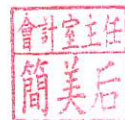 會計室主任
簡美后